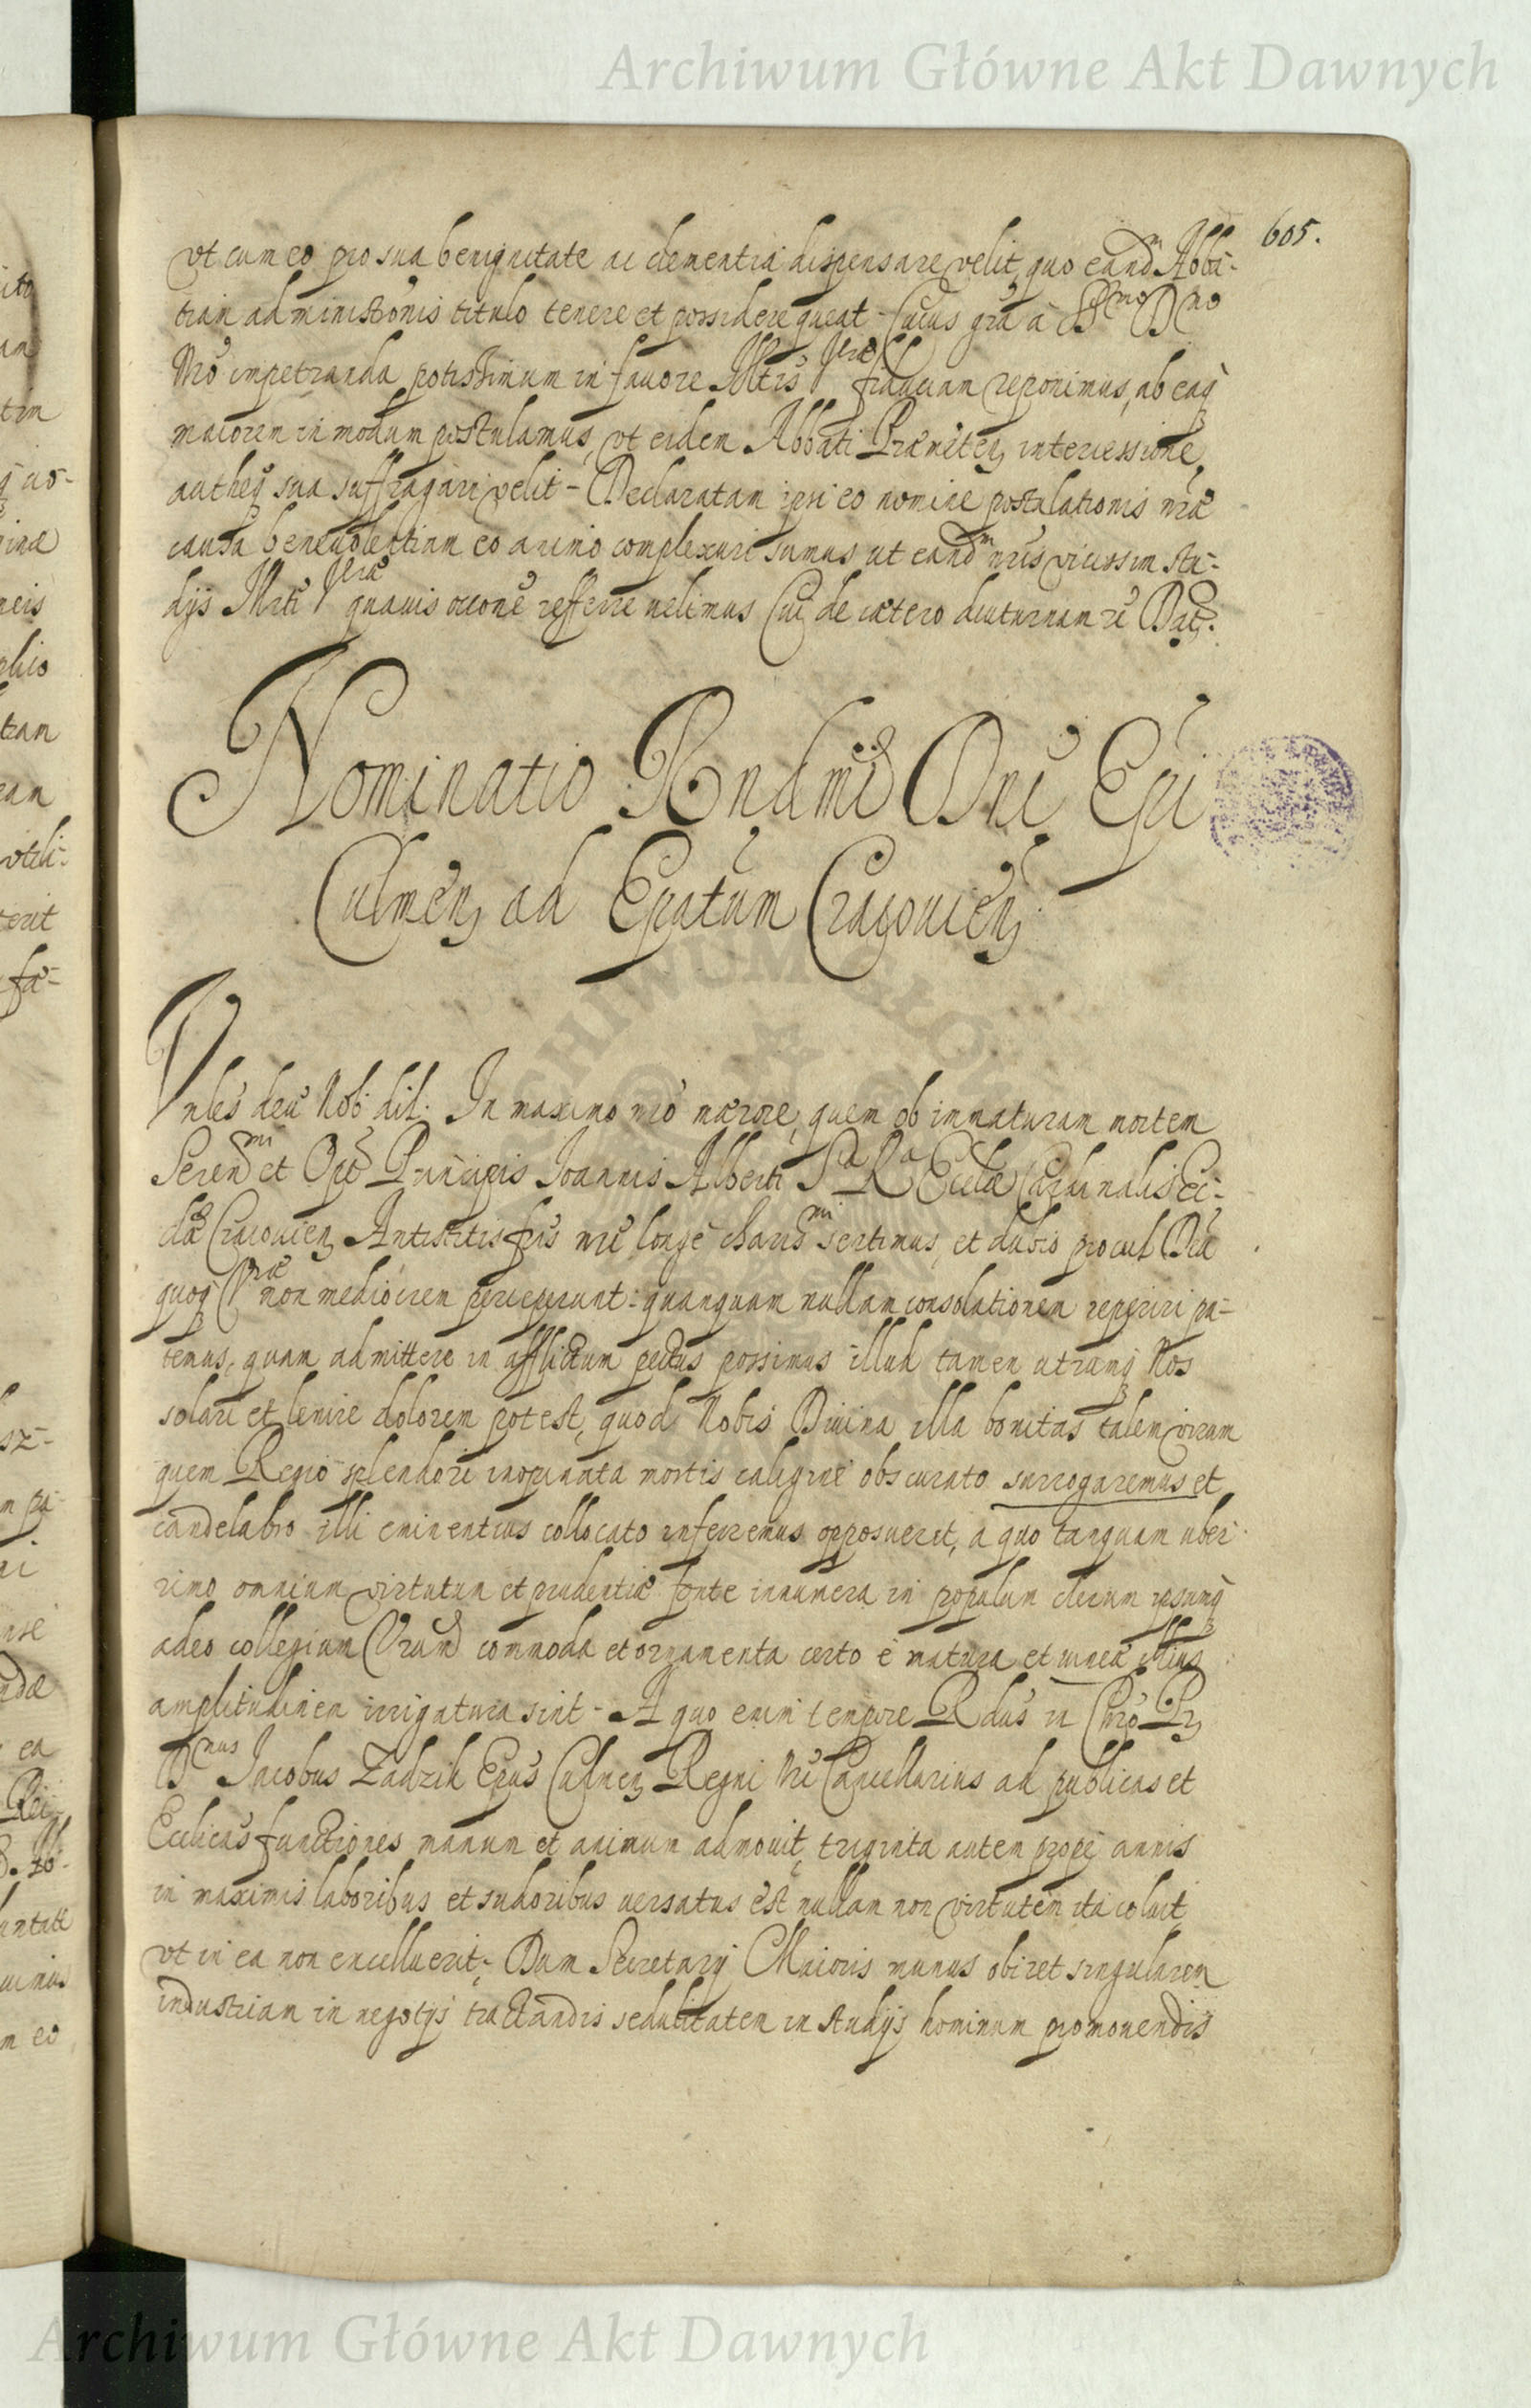 Archiwum Główne Akt Dawnych
605.
vt cum eo pro sua benignitate ac clementia dispensare velit, quo eand̃m Abba-
tiam administrõnis titulo tenere et possidere queat. Cuius grã à Sſmo Dno
Nr̃o impetranda potissimum in favore Mtis Vrae fiduciam reponimus, ab eaq̃
maiorem in modum postulamus, vt eidem Abbati Præmiten̄ intercessione,
autheq̃ sua suffragari velit - Declaratam ipsi eo nomine postulationis nr̃æ
causa benevolentiam eo animo complexuri sumus ut eand̃m nr̃is vicissim stu-
dijs Mtti Vrae quavis occõne referre velimus Cui de cætero diuturnam rẽ Dat̃.
Nominatio Rndmi Dni Epi
Culmeñ ad Epatum Cracovień
Vnles devẽ Nob̃ dil. In maximo nr̃o mærore, quem ob immaturam mortem
Serend̃mi et Opt̃ Principis Joannis Alberti Sa Ra Ecclæ Cardinalis Ec-
clæ Cracovień Antistitis fr̃is nr̃i longe charis̃mi sentimus, et dubio procul Dev̄
quoq̃ Vræ non mediocrem perceperunt: quanquam nullam consolationem reperiri pu-
temus, quam admittere in afflictum pectus possimus illud tamen utrunq̃ Nos
solari et lenire dolorem potest, quod Nobis Divina illa bonitas talem virum
quem Regio splendori inopinata mortis caligine obscurato surrogaremus et
candelabro illi eminentius collocato inferremus opposuerit, a quo tanquam uber
rimo omnium virtutum et prudentiæ fonte innumera in populum clerum ipsumq̃
adeo collegium Vrum̃ commoda et ornamenta certo è natura et illius
amplitudinem irrigatura sint - A quo enim tempore Rdus in Chr̃o Pr̃
Dnus Jacobus Zadzik Epus Culmeñ Regni Nr̃i Cancellarius ad publicas et
Ecclicas functiones manum et animum admovit, triginta autem prope annis
in maximis laboribus et sudoribus versatus est nullam non virtutem ita coluit
vt in ea non excelluerit; Dum Secretarij Maioris munus obiret singularem
industriam in negotijs tractandis sedulitatem in studijs hominum promovendis
Archiwum Główne Akt Dawnych